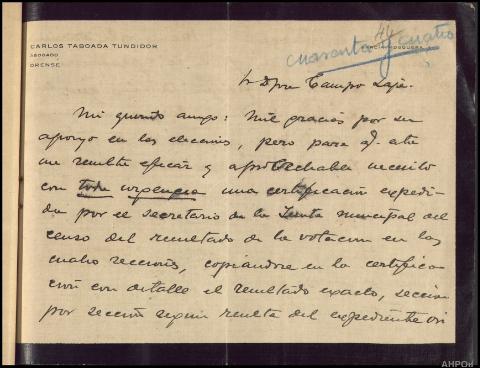 CARLOS TABOADA TUNDIDOR
ABOGADO
ORENSE
44
cuarenta y cuatro
Sr Dn Campo Laje.
Mi querido amigo: Mil gracias por su
apoyo en las elecciones, pero para q. este
me resulte eficaz y aprovechable necesito
con toda urgencia una certificación expedi-
da por el secretario de la Junta municipal del
censo del resultado de la votacion en las
cuatro secciones, copiandose en la certifica-
ción con detalle el resultado exacto, seccion
por sección segun resulta del expediente ori
AHPOu